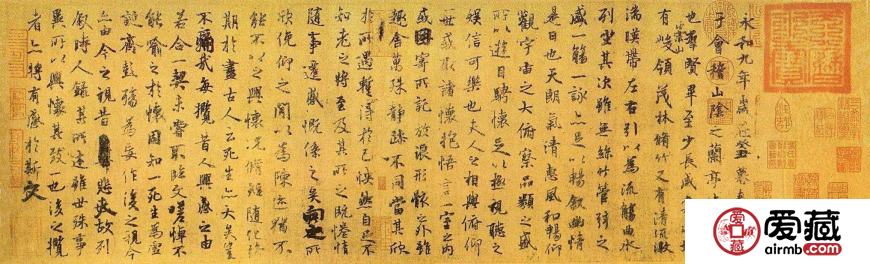 永和九年歲在癸丑暮春
于會稽山陰之蘭亭
也羣賢畢至少長咸
有崇山峻領茂林脩竹又有清流激
湍暎帶左右引以為流觴曲水
列坐其次雖無絲竹管弦之
盛一觴一詠亦足以暢敘幽情
是日也天朗氣清惠風和暢仰
觀宇宙之大俯察品類之盛
所以遊目騁懷足以極視聽之
娛信可樂也夫人之相與俯仰
一世或取諸懷抱悟言一室之內
或因寄所託放浪形骸之外雖
趣舍萬殊靜躁不同當其欣
於所遇蹔得於己怏然自足不
知老之將至及其所之既惓情
隨事遷感慨係之矣向之所
欣俛仰之閒以為陳迹猶不
能不以之興懷況脩短隨化終
期於盡古人云死生亦大矣豈
不痛哉每攬昔人興感之由
若合一契未嘗不臨文嗟悼不
能喻之於懷固知一死生為虛
誕齊彭殤為妄作後之視今
亦由今之視昔悲夫故列
敘時人錄其所述雖世殊事
異所以興懷其致一也後之攬
者亦將有感於斯文
爱藏
airmb.com